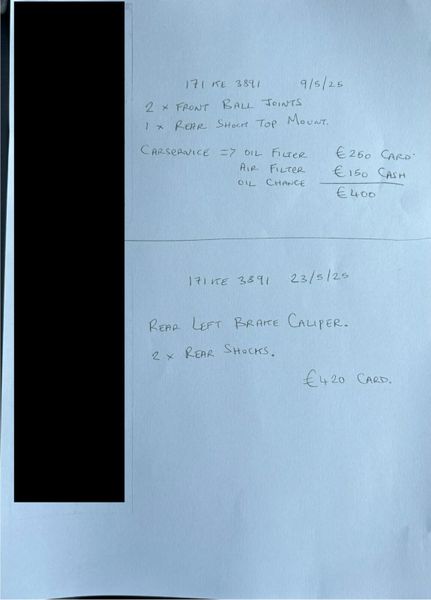 171 KE 3891 9/5/25
2 x FRONT BALL JOINTS
1 x REAR SHOCK TOP MOUNT.
CARSERVICE => OIL FILTER €250 CARD.
AIR FILTER €150 CASH
OIL CHANGE €400
171 KE 3891 23/5/25
REAR LEFT BRAKE CALIPER.
2 x REAR SHOCKS.
€420 CARD.